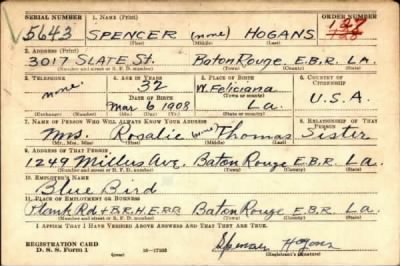 SERIAL NUMBER 1. NAME (Print) ORDER NUMBER
5643 SPENCER (none) HOGANS 127
(First) (Middle) (Last)
2. ADDRESS (Print)
3017 SLATE St. Baton Rouge E.B.R. LA.
(Number and street or R. F. D. number) (Town) (County) (State)
3. TELEPHONE 4. AGE IN YEARS 5. PLACE OF BIRTH 6. COUNTRY OF CITIZENSHIP
none. 32 W. Feliciana
DATE OF BIRTH (Town or county)
Mar 6 1908 La. U.S.A.
(Exchange) (Number) (Mo.) (Day) (Yr.) (State or country)
7. NAME OF PERSON WHO WILL ALWAYS KNOW YOUR ADDRESS 8. RELATIONSHIP OF THAT PERSON
Mrs. Rosalie (none) Thomas Sister
(Mr., Mrs., Miss) (First) (Middle) (Last)
9. ADDRESS OF THAT PERSON
1249 Ave. Baton Rouge E.B.R. La.
(Number and street or R. F. D. number) (Town) (County) (State)
10. EMPLOYER'S NAME
Blue Bird
11. PLACE OF EMPLOYMENT OR BUSINESS
Plank Rd & B.R.H.E.RR Baton Rouge E.B.R. La.
(Number and street or R. F. D. number) (Town) (County) (State)
I AFFIRM THAT I HAVE VERIFIED ABOVE ANSWERS AND THAT THEY ARE TRUE.
REGISTRATION CARD
D. S. S. Form 1 (over) Spencer Hogans
(Registrant's signature)